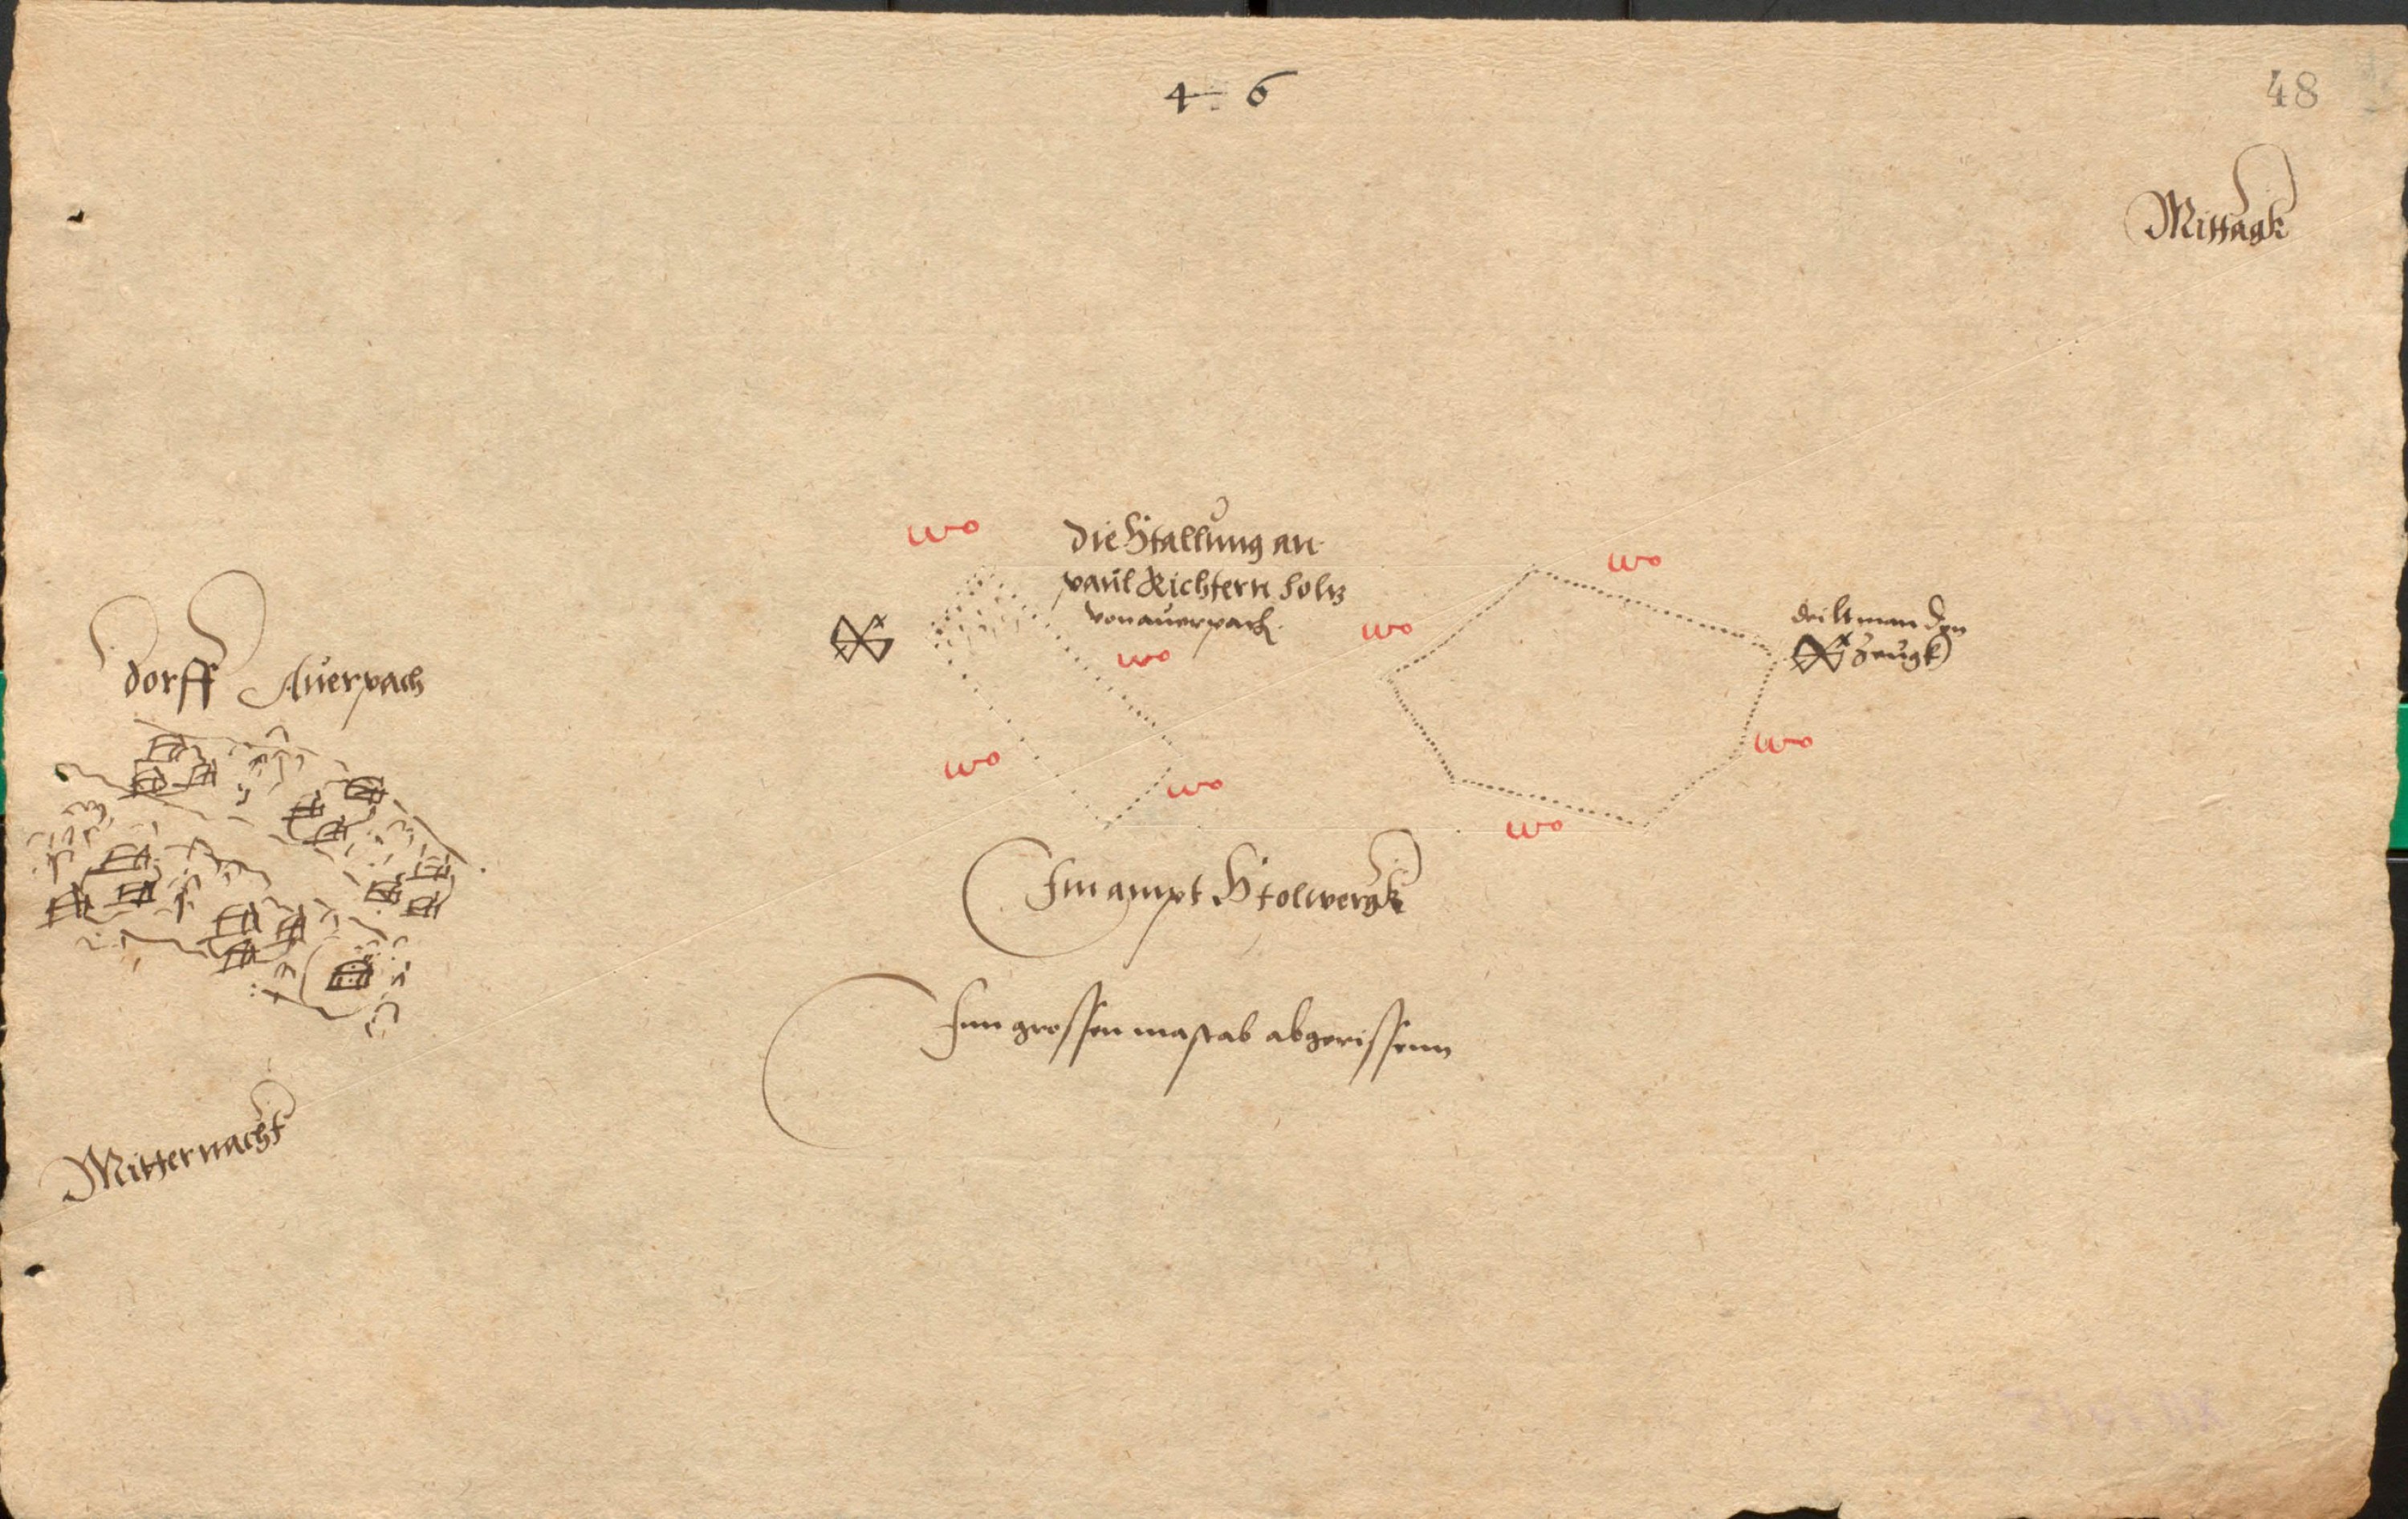 4 6
48
Mittagk
wo
die Stallung an
paul Richtern holtz
von auerpach
wo
wo
wo
deilt man den
zeugk
dorff Auerpach
wo
wo
wo
wo
wo
Im ampt Stolpergk
Inn grossen mastab abgerissenn
Mitternacht